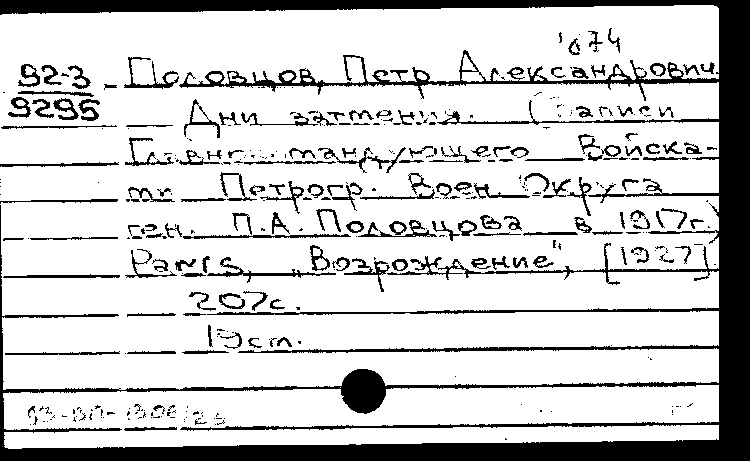 1874
92-3 Половцов, Петр Александрович
9295 Дни затмения. (Записи
Главнокомандующего Войска-
ми Петрогр. Воен. Округа
ген. П.А. Половцова в 1917г.)
Paris, „Возрождение", [1927]
207с.
19cm.